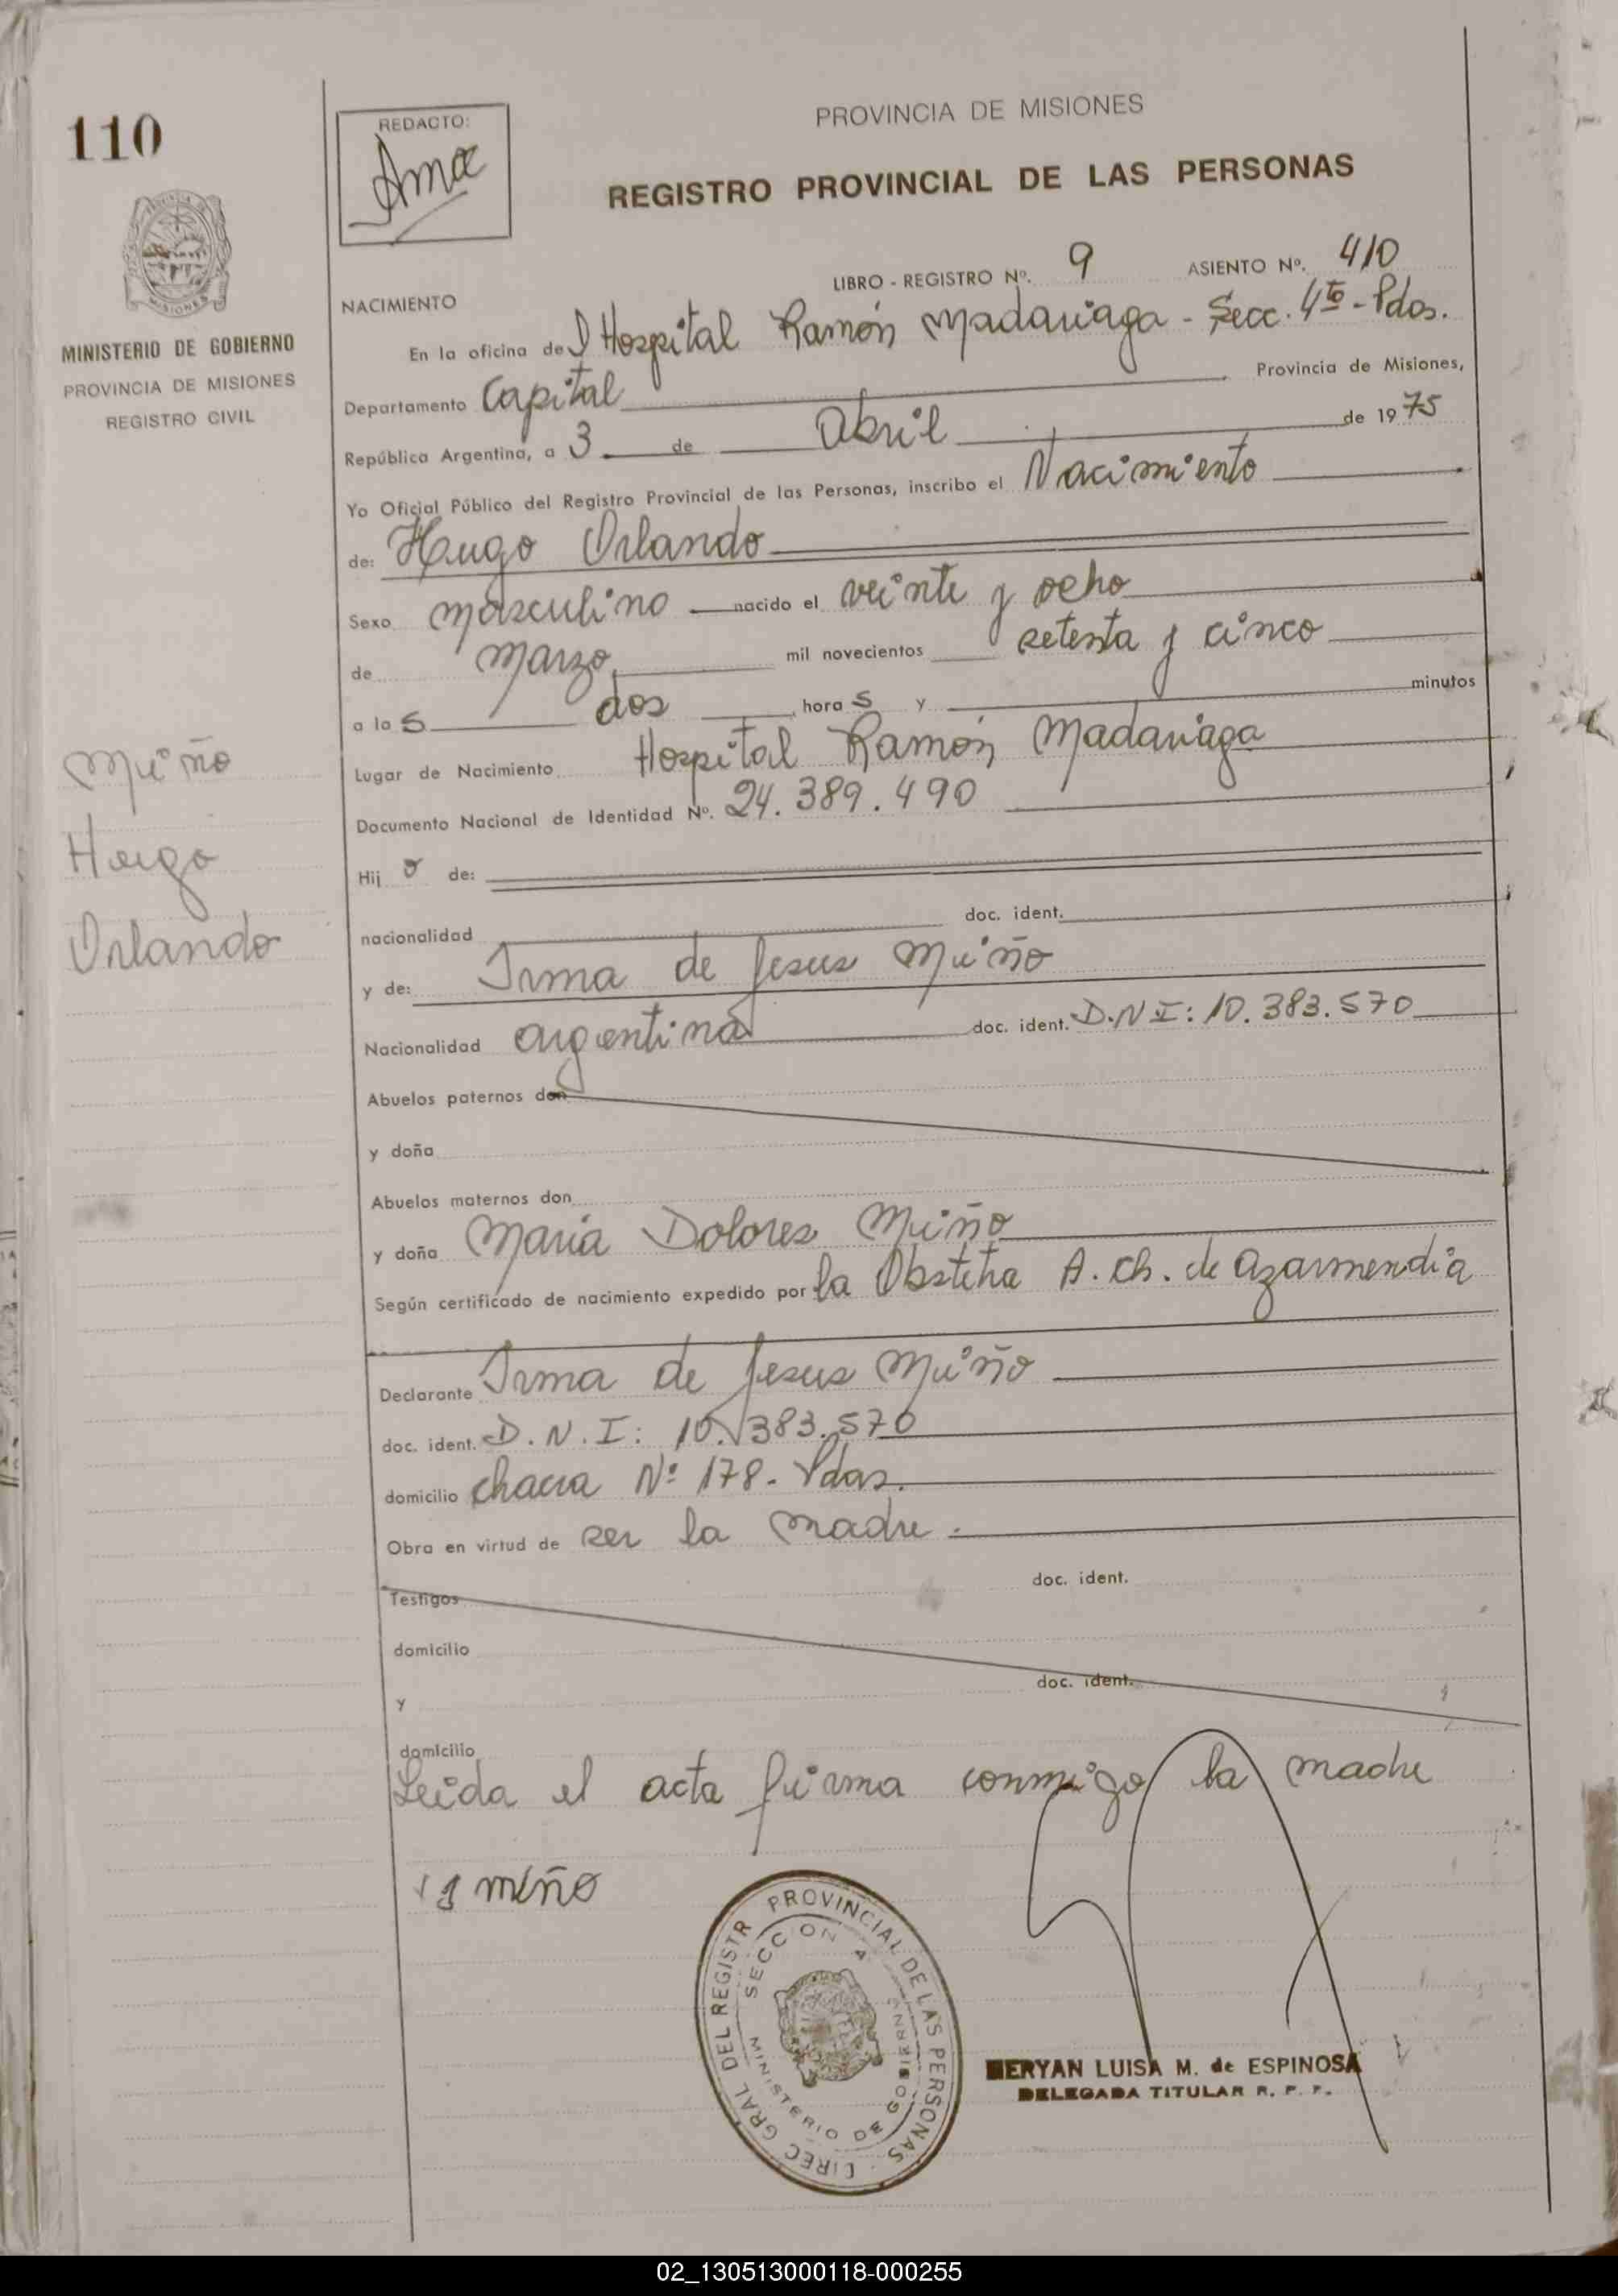 110
REDACTO:
PROVINCIA DE MISIONES
REGISTRO PROVINCIAL DE LAS PERSONAS
LIBRO - REGISTRO Nº. 9 ASIENTO Nº. 410
MINISTERIO DE GOBIERNO
PROVINCIA DE MISIONES
REGISTRO CIVIL
NACIMIENTO
En la oficina del Hospital Ramón Madariaga - Secc. 4ta - Pdas.
Departamento Capital Provincia de Misiones,
República Argentina, a 3 de Abril de 1975
Yo Oficial Público del Registro Provincial de las Personas, inscribo el Nacimiento
de: Hugo Orlando
Sexo masculino nacido el veinte y ocho
de Marzo mil novecientos setenta y cinco
a las dos horas y minutos
Lugar de Nacimiento Hospital Ramón Madariaga
Documento Nacional de Identidad Nº. 24.389.490
Miño
Hugo
Orlando
Hijo de:
nacionalidad doc. ident.
y de: Irma de Jesus Miño
Nacionalidad argentina doc. ident. D.N.I: 10.383.570
Abuelos paternos don
y doña
Abuelos maternos don
y doña Maria Dolores Miño
Según certificado de nacimiento expedido por la Obstetra A. Ch. de Azarmendia
Declarante Irma de Jesus Miño
doc. ident. D.N.I: 10.383.570
domicilio chacra Nº 178 - Pdas.
Obra en virtud de ser la madre.
doc. ident.
Testigos
domicilio
doc. ident.
y
domicilio
Leida el acta firma conmigo la madre
miño
DIREC GRAL DEL REGISTR PROVINCIAL DE LAS PERSONAS
SECCION 4
MINISTERIO DE GOBIERNO
MERYAN LUISA M. de ESPINOSA
DELEGADA TITULAR R. P. P.
02_130513000118-000255